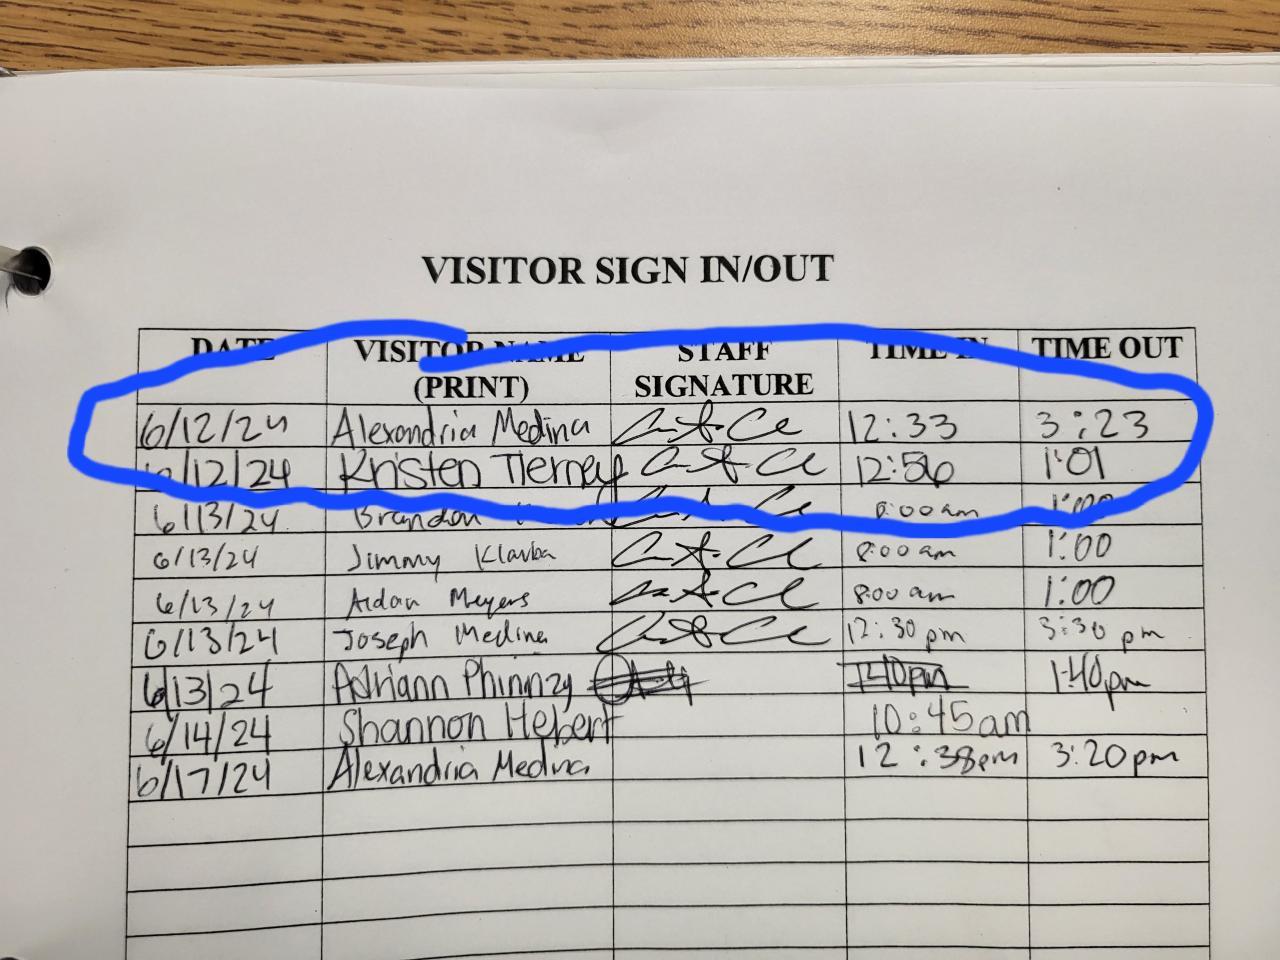 VISITOR SIGN IN/OUT
DATE VISITOR NAME (PRINT) STAFF SIGNATURE TIME IN TIME OUT
6/12/24 Alexandria Medina 12:33 3:23
6/12/24 Kristen Tierney 12:56 1:01
6/13/24 Brandon 8:00am 1:00
6/13/24 Jimmy 8:00 am 1:00
6/13/24 Aidan Meyers 8:00 am 1:00
6/13/24 Joseph Medina 12:30 pm 3:30 pm
6/13/24 Adriann Phinnzy 1:40pm 1:40pm
6/14/24 Shannon Hebert 10:45am
6/17/24 Alexandria Medina 12:38pm 3:20pm